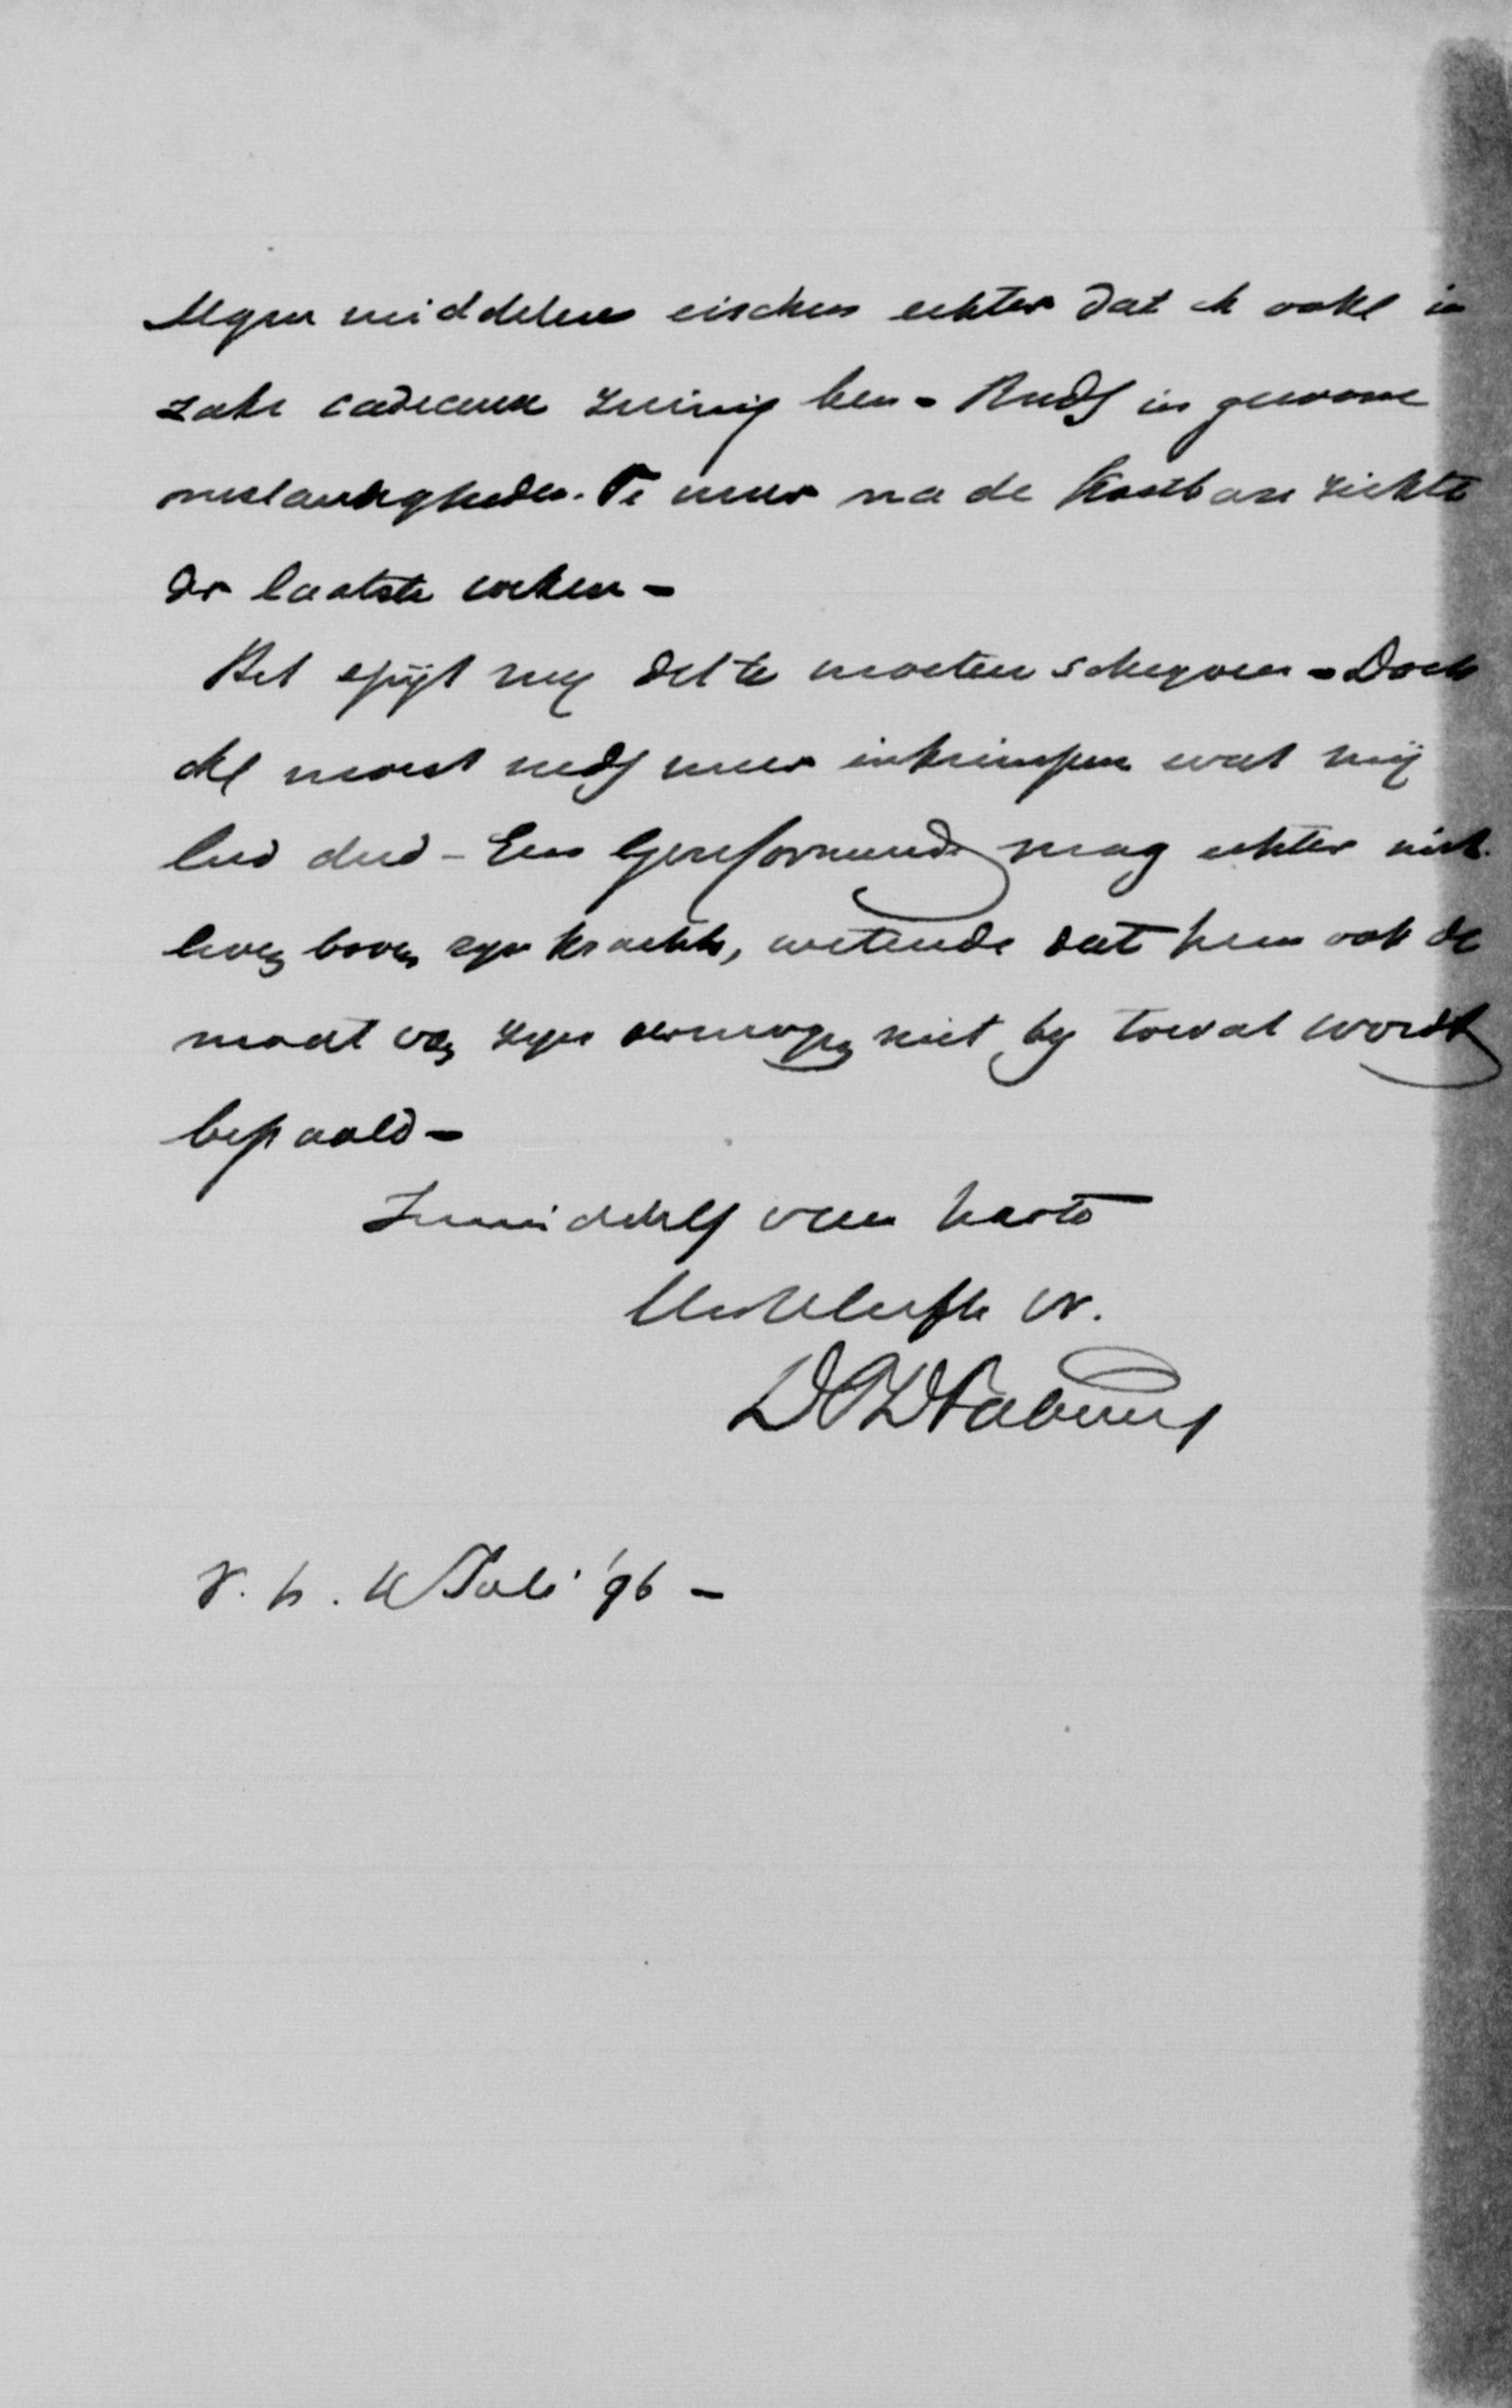 Mijn middelen eischen echter dat ik ook in
zake cadeaux zuinig ben - Reeds in gewone
omstandigheden. Te meer na de kostbare ziekte
der laatste weken -
Het spijt mij dit te moeten schrijven - Doch
ik moest reeds meer inkrimpen wat mij
leed deed - Een Gereformeerde mag echter niet
leven boven zijn kracht, wetende dat hem ook de
maat van zijn vermogen niet bij toeval wordt
bepaald -
Inmiddels van harte
Uw
DPDFabius
Juli '96 -